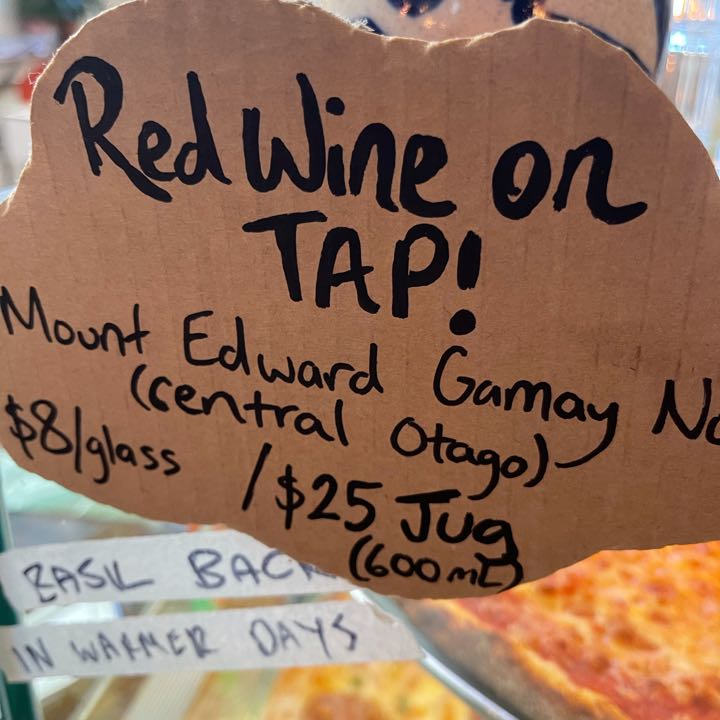 Red Wine on
TAP!
Mount Edward Gamay No
(Central Otago)
$8/glass / $25 Jug
(600mL)
BASIL BACK
IN WARMER DAYS